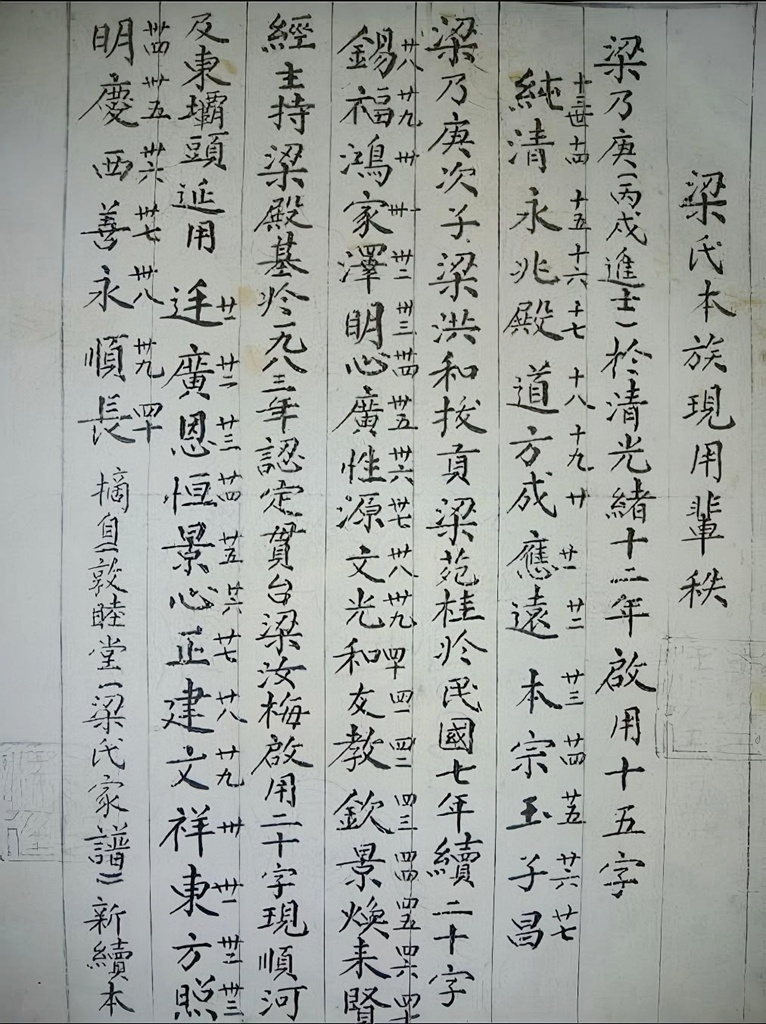 梁氏本族現用輩秩
梁乃庚(丙戌進士)於清光緒十二年啟用十五字
十三世 十四 十五 十六 十七 十八 十九 廿 廿一 廿二 廿三 廿四 廿五 廿六 廿七
純清永兆殿道方成應遠本宗玉子昌
梁乃庚次子梁洪和拔貢梁苑桂於民國七年續二十字
廿八 廿九 卅 卅一 卅二 卅三 卅四 卅五 卅六 卅七 卅八 卅九 四十 四一 四二 四三 四四 四五 四六 四七
錫福鴻家澤明心廣性源文光和友教欽景煥来賢
經主持梁殿基於一九八三年認定貫台梁汝梅啟用二十字現順河
及東壩頭延用
廿一 廿二 廿三 廿四 廿五 廿六 廿七 廿八 廿九 卅 卅一 卅二 卅三
廣恩恒景心正建文祥東方照
卅四 卅五 卅六 卅七 卅八 卅九 四十
明慶西善永順長
摘自《敦睦堂(梁氏家譜)》新續本